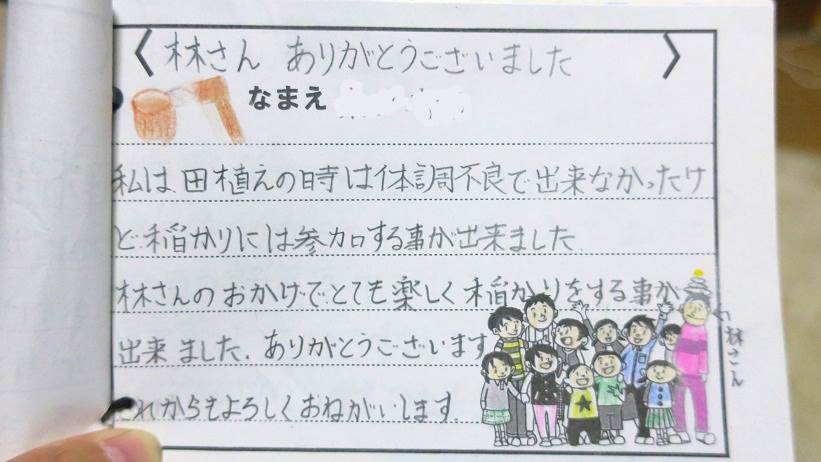 〈林さん ありがとうございました〉
なまえ
私は、田植えの時は体調不良で出来なかったけ
ど、稲かりには参加する事が出来ました。
林さんのおかげでとても楽しく稲かりをする事が
出来ました。ありがとうございます
これからもよろしくおねがいします。
林さん